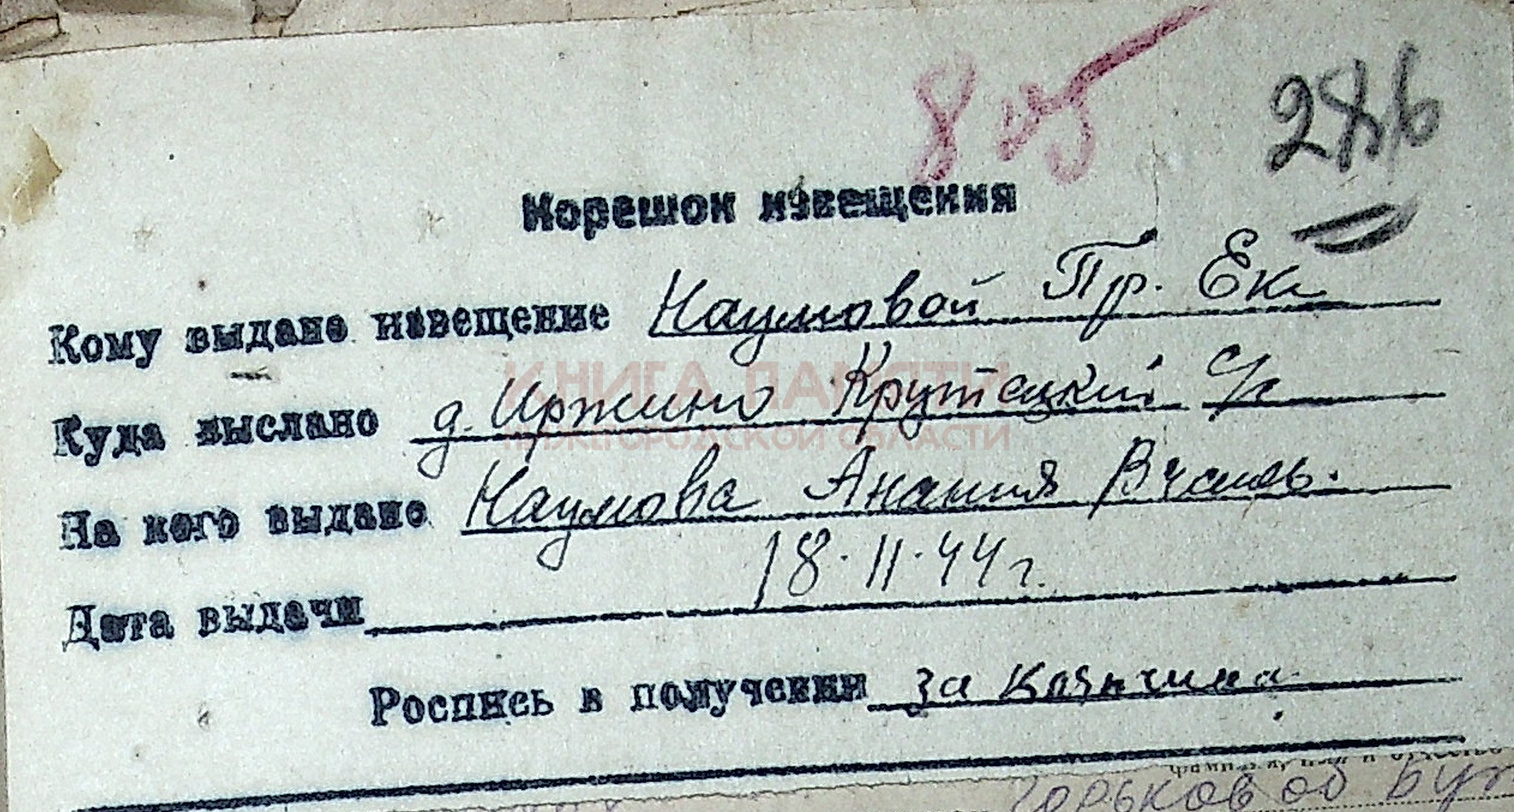 805 286
Корешон извещения
Кому выдано извещение Наумовой Пр. Ек
Куда выслано д. Иржино Крутецкий с/с
КНИГА ПАМЯТИ
НИЖЕГОРОДСКОЙ ОБЛАСТИ
На кого выдано Наумова Анания Василь.
Дата выдачи 18.11.44 г.
Роспись в получении за
фамилия, имя и отчество
Горьков об